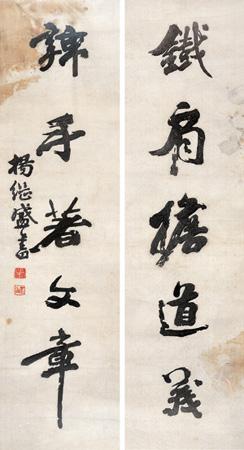 鐵肩擔道義
辣手著文章
楊继盛書